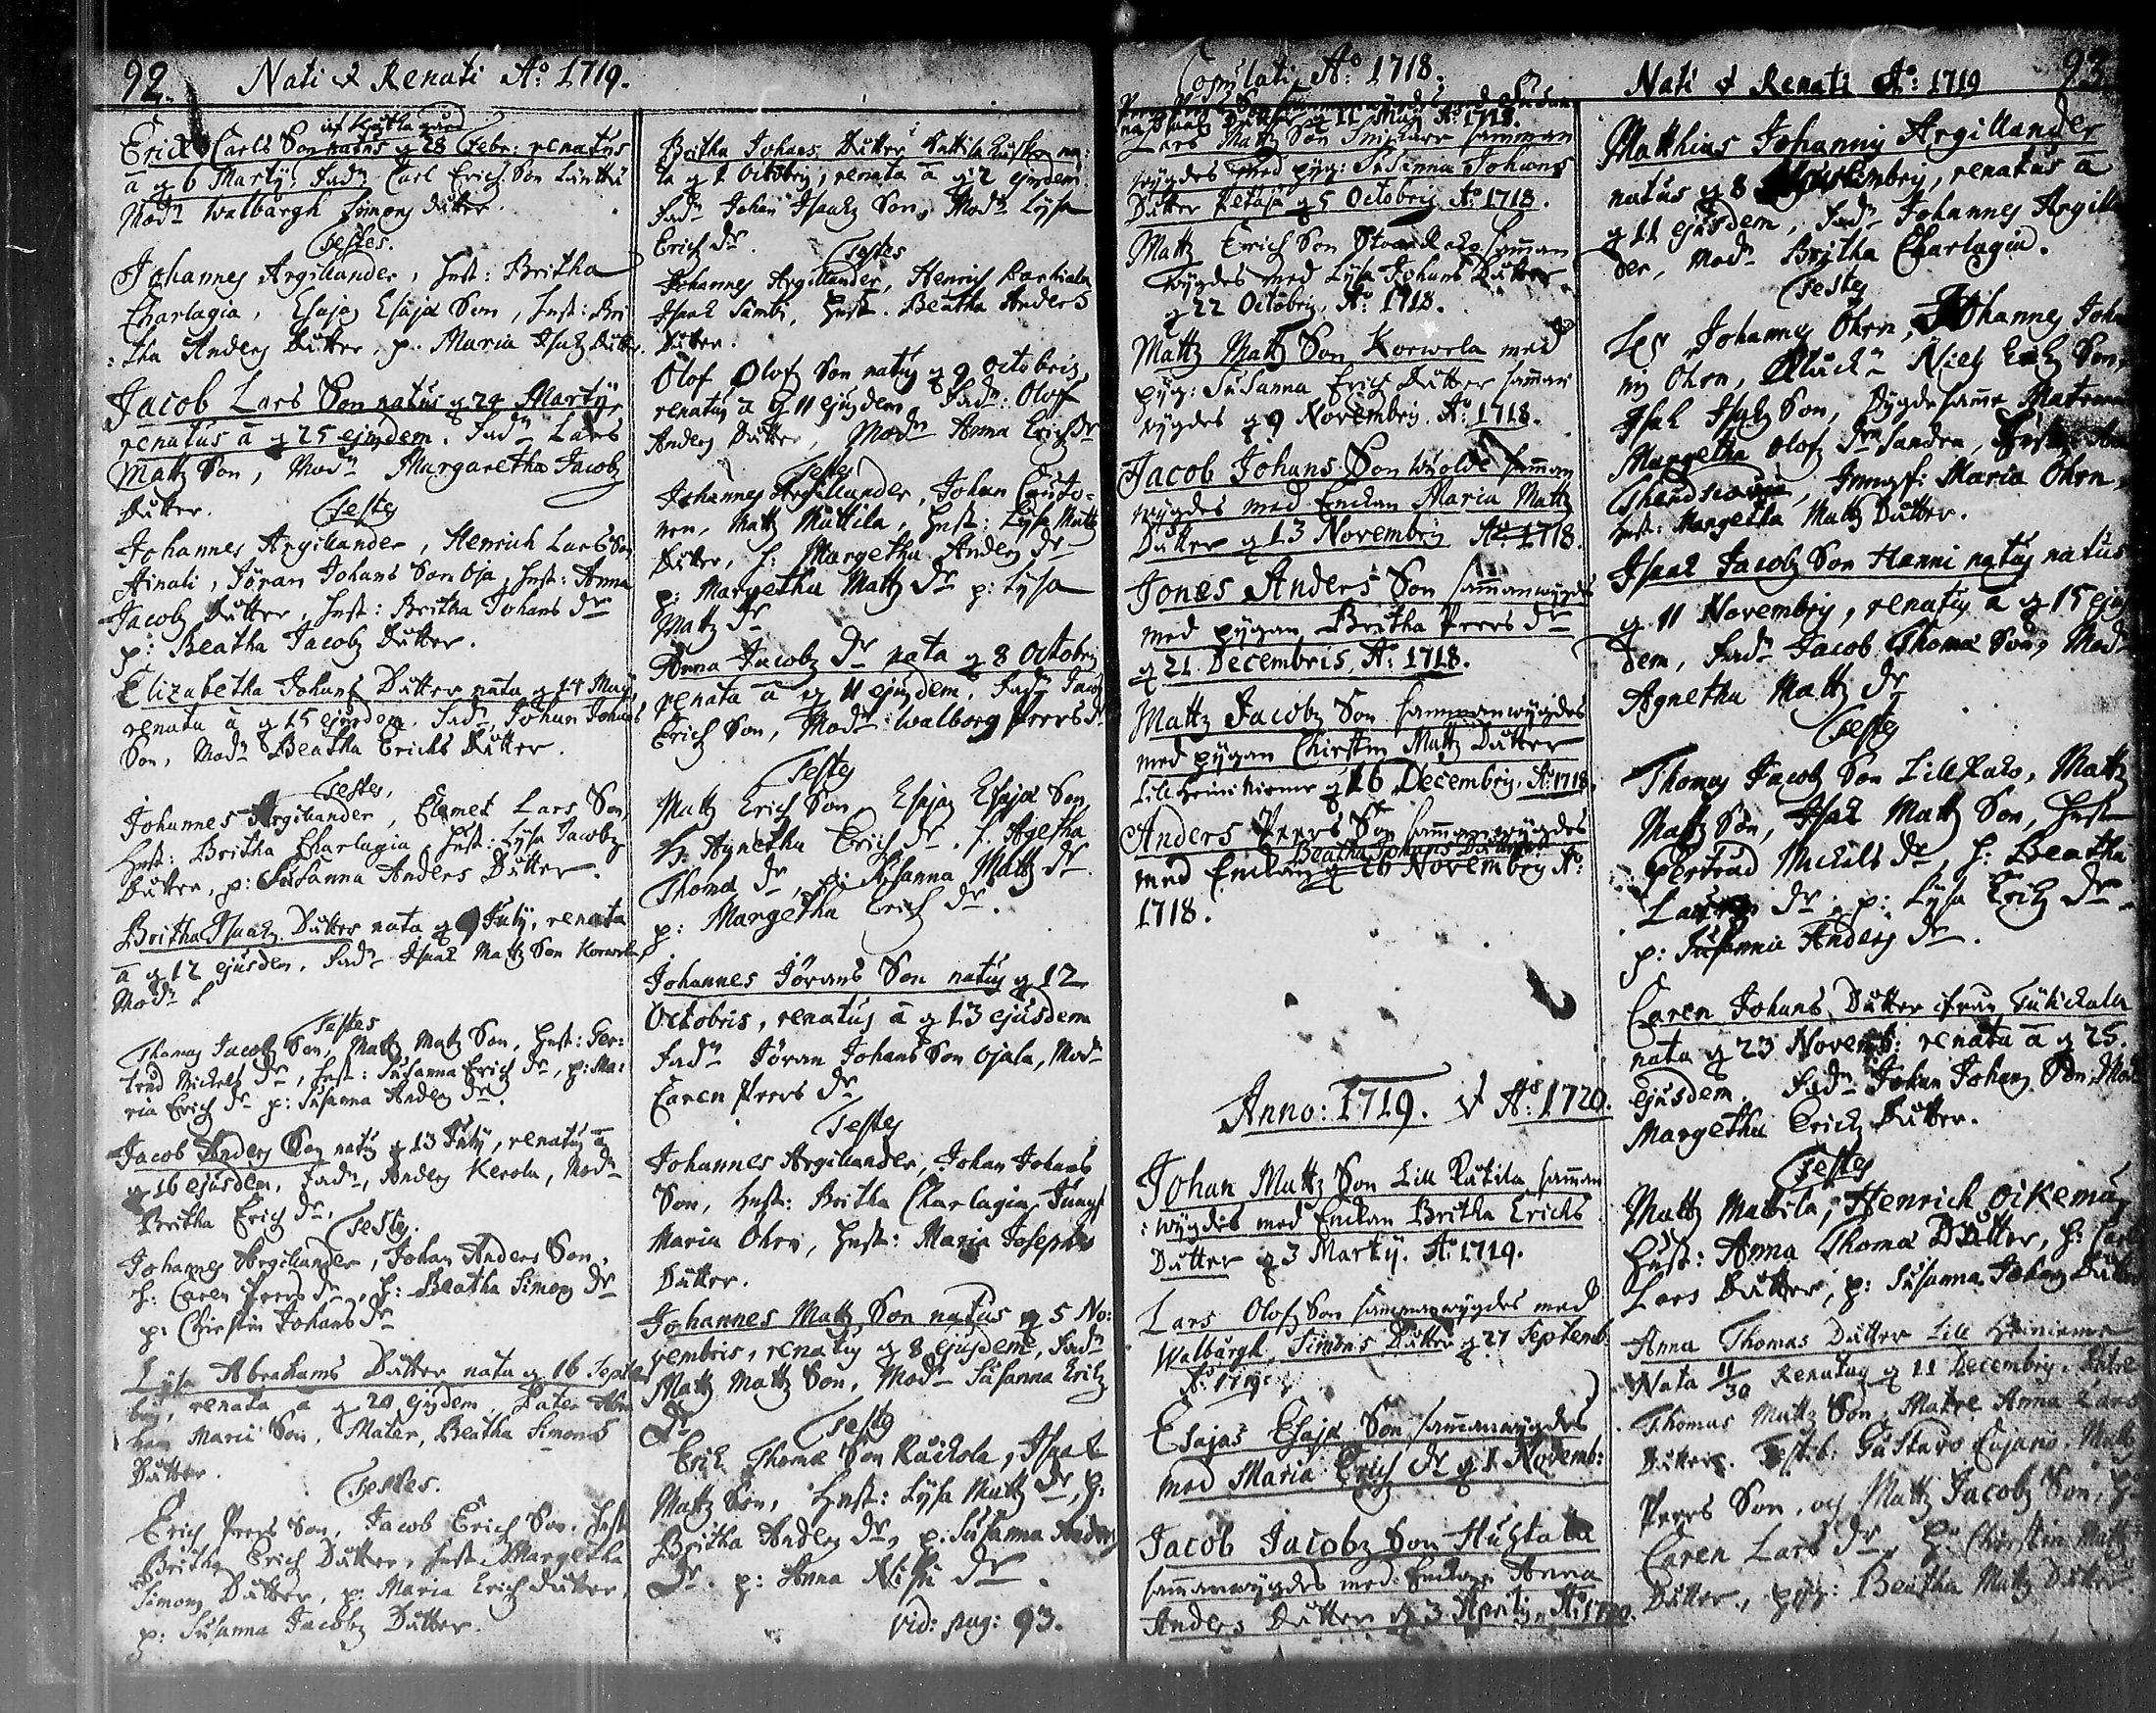 92. Nati & Renati Aº 1719.
af Kytla gård
Erick Carls Son natus g 28 Febr: renatus
a g 6 Martij, Fadn Carl Erich Son
Modn Walbargh Simons dutter.
Testes.
Johannes Argillander, Hust: Britha
Charlagia, Esajas Esajæ Son, Hust: Bri
:tha Anders Dutter, p. Maria Isacks Dutter.
Jacob Lars Son natus g 24 Martij,
renatus a g 25 ejusdem. Fadn Lars
Mattz Son, Modn Margaretha Jacobs
Dutter. Testes
Johannes Argillander, Henrich Lars Son
Ainali, Jöran Johans Son Oja, Hust: Anna
Jacobs Dutter, Hust: Britha Johans dr
p: Beatha Jacobs Dutter.
Elizabetha Johans Dutter nata g 14 Maij
renata a g 15 ejusdem. Fadn Johan Johans
Son, Modn Beatha Erichs Dutter.
Testes,
Johannes Argillander, Clemet Lars Son
Hust: Britha Charlagia, Hust: Lysa Jacobs
Dutter, p: Susanna Anders Dutter.
Britha Isaachs Dutter nata g 9 July, renata
a g 12 ejusdem. Fadn Isaac Mattz Son Korwela,
Modn L
Testes
Thomas Jacobs Son, Mattz Mattz Son, Hust: Ger:
trud Mickels dr, Hust: Susanna Erichs dr, p: Ma:
ria Erichs dr p: Susanna Anders dr.
Jacob Anders Son natus g 13 July, renatus a
g 16 ejusdem, Fadn, Anders Kerola, Modn
Britha Erichs dr.
Testes.
Johannes Argillander, Johan Anders Son,
H: Caren Peers dr, H: Beatha Simons dr
p: Chirstin Johans dr
Lysa Abrahams Dutter nata g 16 Septem
bris, renata a g 20 ejusdem Pater Abra
ham Marci Son, Mater, Beatha Simons
Dutter.
Testes.
Erich Peers Son, Jacob Erichs Son, Hust
Britha Erichs Dutter, Hust Margetha
Simons Dutter, p: Maria Erichs dutter,
p: Susanna Jacobs Dutter.
Britha Johans Dutter na:
ta g 1 Octobris, renata a g 2 ejusdem
Fadn Johan Isaachs Son, Modn Lysa
Erichs dr. Testes
Johannes Argillander, Henrich
Isaac Lambi, Hust. Beatha Anders
Dutter.
Olof Olofs Son natus g 9 Octobris,
renatus a g 11 ejusdem Fadn: Olof
Anders Dutter, Modn Anna Erichs dr
Testes
Johannes Argillander, Johan Cauto-
nen, Mattz Mattila, Hust: Lysa Mattz
Dutter, H: Margetha Anders dr
p: Margetha Mattz dr p: Lysa
Mattz dr
Anna Jacobs dr nata g 8 Octobris
renata a g 11 ejusdem. Fadn Jacob
Erichs Son, Modn: Walborg Peers dr
Testes
Mattz Erichs Son, Esajas Esajæ Son,
H: Agnetha Erichs dr. H. Agetha
Thomæ dr, p: Susanna Mattz dr
p: Margetha Erichs dr.
Johannes Jörans Son natus g 12
Octobris, renatus a g 13 ejusdem
Fadn Jöran Johans Son Ojala, Modn
Caren Peers dr
Testes
Johannes Argillander, Johan Johans
Son, Hust: Britha Charlagia, Jungf
Maria Ohrn, Hust: Maria Josephs
Dutter.
Johannes Mattz Son natus g 5 No:
vembris, renatus g 8 ejusdem, Fadn
Mattz Mattz Son, Modn Susanna Erichs
Dr Testes
Erich Thomæ Son Rückola, Isaac
Mattz Son, Hust: Lysa Mattz dr, H:
Britha Anders dr, p: Susanna Anders
Dr. p: Anna Nils dr.
vid: pag: 93.
Copulati Aº: 1718.
g 11 Maij Aº 1718.
Lars Mattz Son Snickare samman
wygdes med pyg: Susanna Johans
Dutter Petäjä g 5 Octobris Aº 1718.
Mattz Erichs Son Stoor samman
wygdes med Lysa Johans Dutter
g 22 Octobris, Aº: 1718.
Mattz Mattz Son Korwela med
pyg: Susanna Erichs Dutter samman
wygdes g 9 Novembris. Aº: 1718.
Jacob Johans Son samman
wygdes med Enckan Maria Mattz
Dutter g 13 Novembris Aº: 1718.
Jones Anders Son sammanwygdes
med pygan Britha Peers dr
g 21. Decembris, Aº: 1718.
Mattz Jacobs Son sammanwygdes
med pygan Chirstin Mattz Dutter
Lill Heiniemi g 16 Decembris, Aº: 1718.
Anders Peers Son sammanwygdes
Beatha Johans Dutter
med Enckan g 26 Novembris Aº:
1718.
Anno: 1719. & Aº: 1720.
Johan Mattz Son Lill Rätila samman
:wygdes med Enckan Britha Erichs
Dutter g 3 Martij. Aº: 1719.
Lars Olofs Son sammanwygdes med
Walbargh Simons Dutter g 27 Septemb:
Aº: 1719.
Esajas Esajæ Son sammanwygdes
med Maria Erichs dr g 1 Novemb:
Jacob Jacobs Son Huhtala
sammanwygdes med Enckan Anna
Anders Dutter g 3 Aprilis, Aº: 1720.
Nati & Renati Aº: 1719 93.
Matthias Johannis Argillander
natus g 8 Novembris, renatus a
g 11 ejusdem, Fadn Johannes Argillan
der, Modn Britha Charlagia.
Testes
Johannes Ohrn, Johannes Johan
nis Ohrn, Niels Erichs Son,
Isak Isaks Son, Dygdesamme Matrona
Margetha Olofs dr Sandra, Hust:
Jungf: Maria Ohrn,
Hust: Margetha Mattz Dutter.
Isaac Jacobs Son Hanni natus natus
g. 11 Novembris, renatus a g 15 ejus
dem, Fadn Jacob Thomæ Son, Modn
Agnetha Mattz dr
Testes
Thomas Jacobs Son Lill, Mattz
Mattz Son, Isak Mattz Son, Hust
Gertrud Mickels dr, H: Beatha
Lars dr, p: Lysa Erichs dr.
p: Susanna Anders dr.
Caren Johans Dutter ifrån
nata g 23 Novemb: renata a g 25.
ejusdem. Fadn Johan Johans Son, Modn
Margetha Erichs Dutter.
Testes
Mattz Mattila, Henrich Oikemus
Hust: Anna Thomæ Dutter, H: Caren
Lars Dutter, p: Susanna Johans Dutter
Anna Thomas Dutter Lill Heiniemi
Nata 11/30 Renatus g 11 Decembris. Patre
Thomas Mattz Son, Matre Anna Lars
Dutter. Testib: Gustavo Cajano. Mattz
Peers Son, och Mattz Jacobs Son, H:
Caren Lars dr, H: Chirstin Mattz
Dutter, pyg: Beatha Mattz Dutter